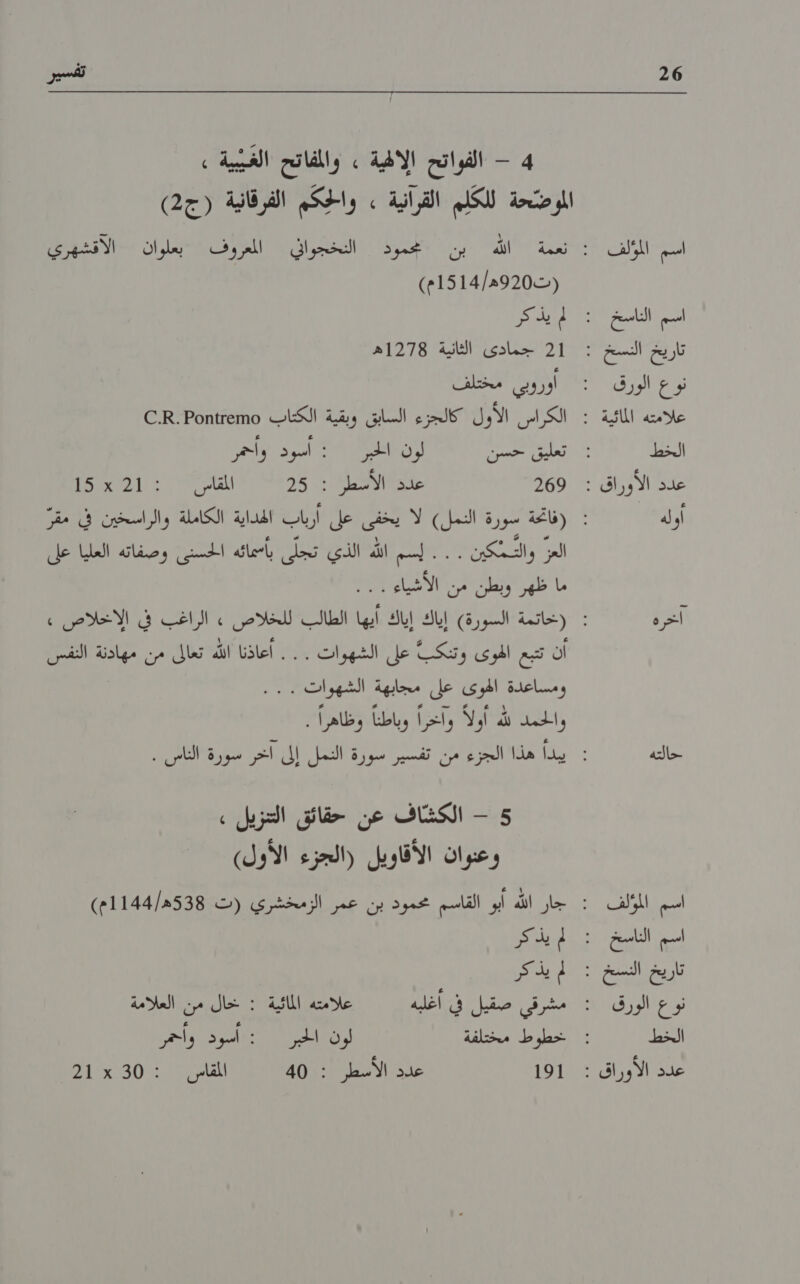 26 تفسير
4 – الفواتح الإلهية ، والمفاتح الغَيْبية ،
الموضّحة للكَلِم القرآنية ، والحِكَم الفرقانية (ج2)
اسم المؤلف : نعمة الله بن محمود النخجواني المعروف بعلوان الآقشهري
(ت920ه/1514م)
اسم الناسخ : لم يذكر
تاريخ النسخ : 21 جمادى الثانية 1278ه
نوع الورق : أوروبي مختلف
علامته المائية : الكراس الأول كالجزء السابق وبقية الكتاب C.R. Pontremo
الخط : تعليق حسن لون الحبر : أسود وأحمر
عدد الأوراق : 269 عدد الأسطر : 25 المقاس : 21 x 15
أوله : (فاتحة سورة النمل) لا يخفى على أرباب الهداية الكاملة والراسخين في مقرّ
العزّ والتَّمْكين . . . لبسم الله الذي تجلّى بأسمائه الحسنى وصفاته العليا على
ما ظهر وبطن من الأشياء . . .
آخره : (خاتمة السورة) إياك إياك أيها الطالب للخلاص ، الراغب في الإخلاص ،
أن تتبع الهوى وتنكبَّ على الشهوات . . . أعاذنا الله تعالى من مهادنة النفس
ومساعدة الهوى على مجابهة الشهوات . . .
والحمد لله أولاً وآخراً وباطناً وظاهراً .
حالته : يبدأ هذا الجزء من تفسير سورة النمل إلى آخر سورة الناس .
5 – الكشّاف عن حقائق التنزيل ،
وعنوان الأقاويل (الجزء الأول)
اسم المؤلف : جار الله أبو القاسم محمود بن عمر الزمخشري (ت 538ه/1144م)
اسم الناسخ : لم يذكر
تاريخ النسخ : لم يذكر
نوع الورق : مشرقي صقيل في أغلبه علامته المائية : خال من العلامة
الخط : خطوط مختلفة لون الحبر : أسود وأحمر
عدد الأوراق : 191 عدد الأسطر : 40 المقاس : 30 x 21